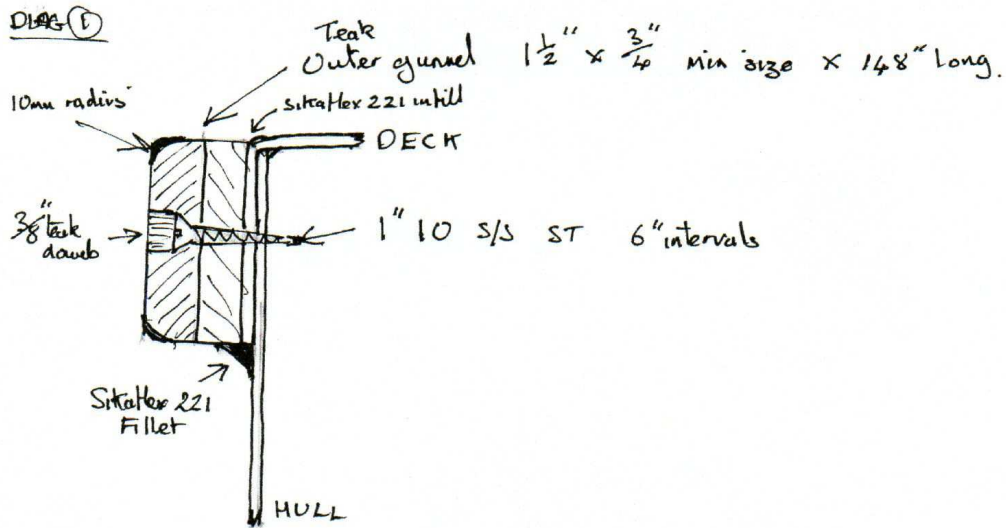 DIAG E
Teak
Outer gunnel 1 1/2" x 3/4" min size x 148" Long.
10mm radius
sikaflex 221 infill
DECK
3/8" teak
dowels
1" 10 S/S ST 6" intervals
Sikaflex 221
Fillet
HULL